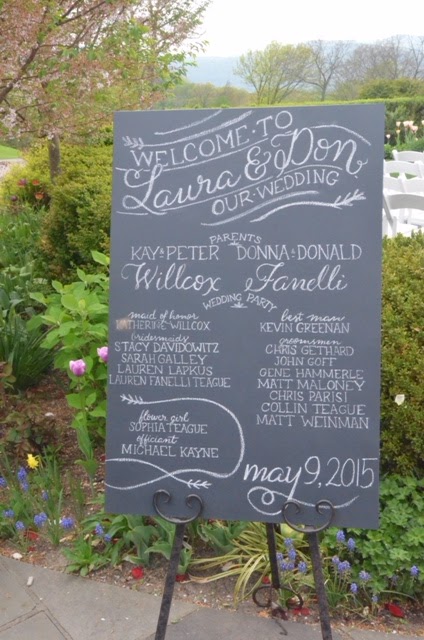 WELCOME·TO
Laura & Don
OUR·WEDDING
PARENTS
KAY & PETER DONNA & DONALD
Willcox Fanelli
WEDDING PARTY
maid of honor
KATHERINE WILLCOX
bridesmaids
STACY DAVIDOWITZ
SARAH GALLEY
LAUREN LAPKUS
LAUREN FANELLI TEAGUE
best man
KEVIN GREENAN
groomsmen
CHRIS GETHARD
JOHN GOFF
GENE HAMMERLE
MATT MALONEY
CHRIS PARISI
COLLIN TEAGUE
MATT WEINMAN
flower girl
SOPHIA TEAGUE
officiant
MICHAEL KAYNE
may 9, 2015